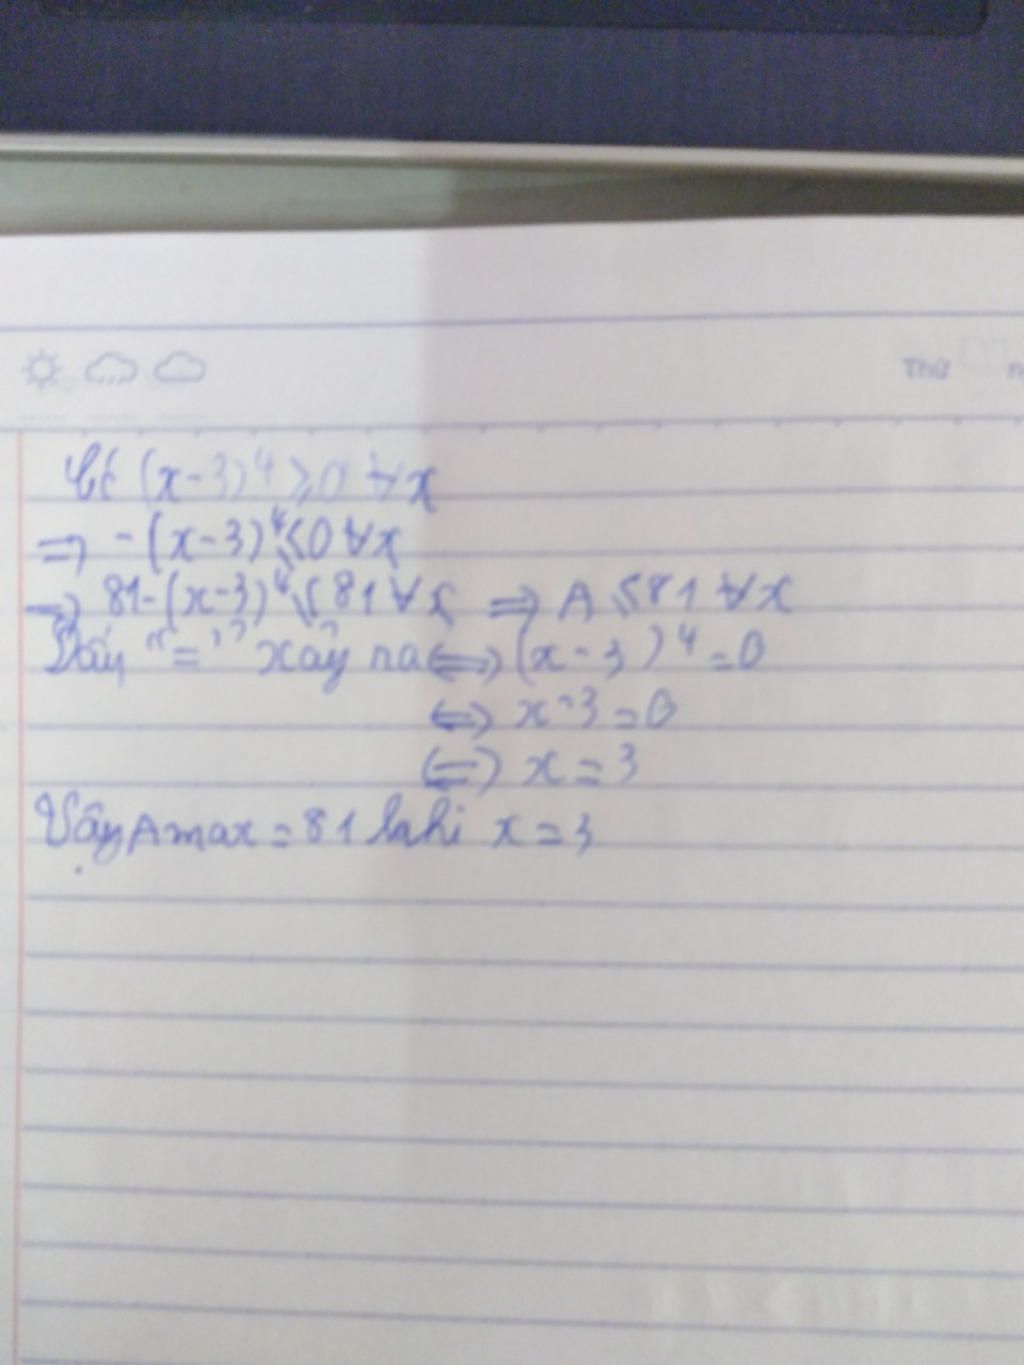 Thứ
Có (x-3)⁴ ≥ 0 ∀x
⇒ -(x-3)⁴ ≤ 0 ∀x
⇒ 81-(x-3)⁴ ≤ 81 ∀x ⇒ A ≤ 81 ∀x
Dấu "=" xảy ra ⇔ (x-3)⁴ = 0
⇔ x-3 = 0
⇔ x = 3
Vậy Amax = 81 khi x = 3